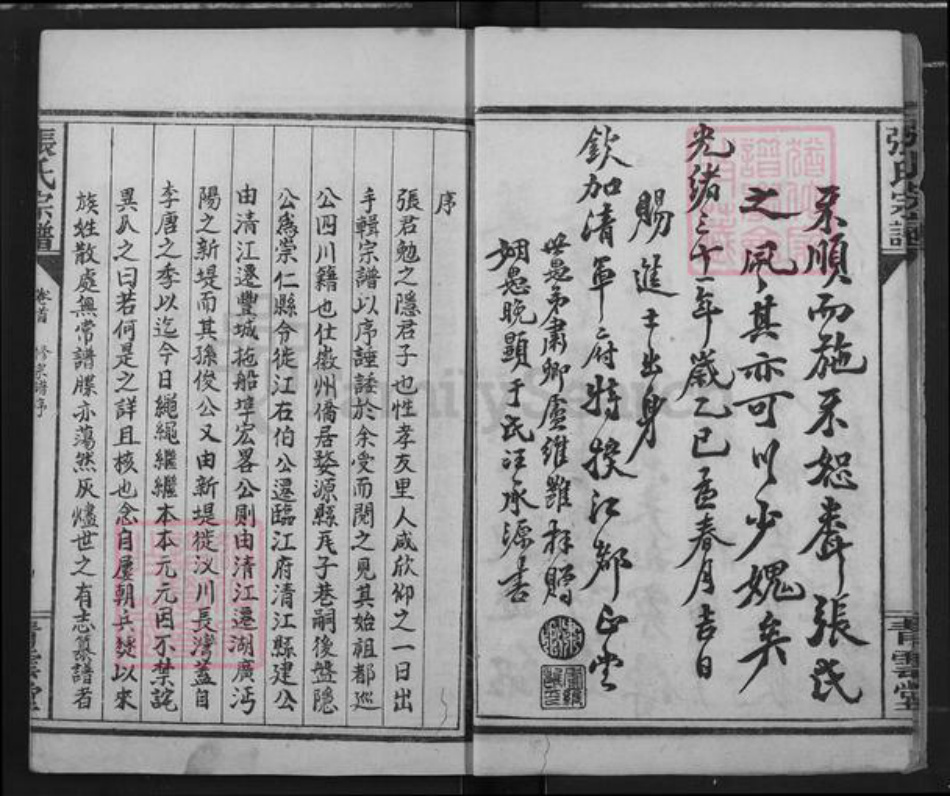 來順而施來恕聲張氏
之風其亦可以少媿矣
光緒三十一年歲乙巳孟春月吉日
賜進士出身
欽加清軍府特授江都正堂
世愚弟肅卿盧維雝拜贈
姻愚晚顯于氏汪承源書
序
張君勉之隱君子也性孝友里人咸欣仰之一日出
手輯宗譜以序諈諉於余受而閱之見其始祖都巡
公四川籍也仕徽州僑居婺源縣兎子巷嗣後盤隱
公爲崇仁縣令徙江右伯公遷臨江府清江縣建公
由清江遷豐城拖船埠宏畧公則由清江遷湖廣沔
陽之新堤而其孫俊公又由新堤徙汊川長灣蓋自
李唐之季以迄今日繩繩繼繼本本元元因不禁詫
異久之曰若何是之詳且核也念自屢朝兵燹以來
族姓散處無常譜牒亦蕩然灰燼世之有志纂譜者
張氏宗譜
卷首 修宗譜序
青雲堂